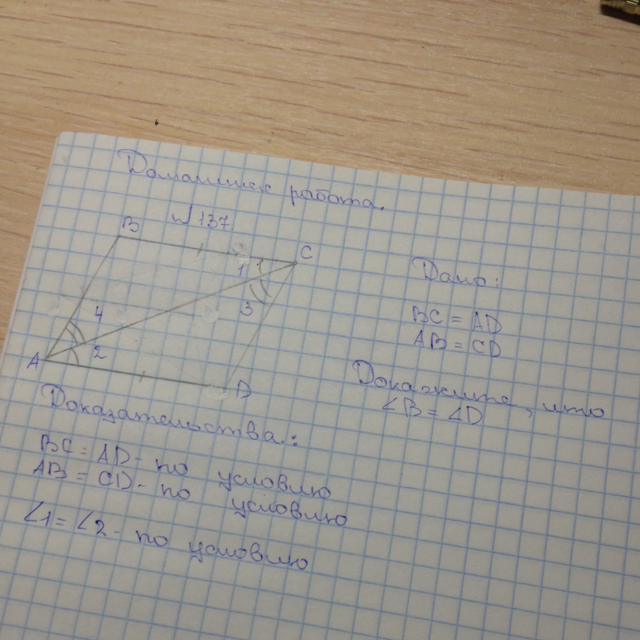 Домашнее работа.
№ 137
B
C
1
3
4
2
A
D
Дано:
BC = AD
AB = CD
Докажите, что
∠B = ∠D
Доказательства:
BC = AD - по условию
AB = CD - по условию
∠1 = ∠2 - по условию